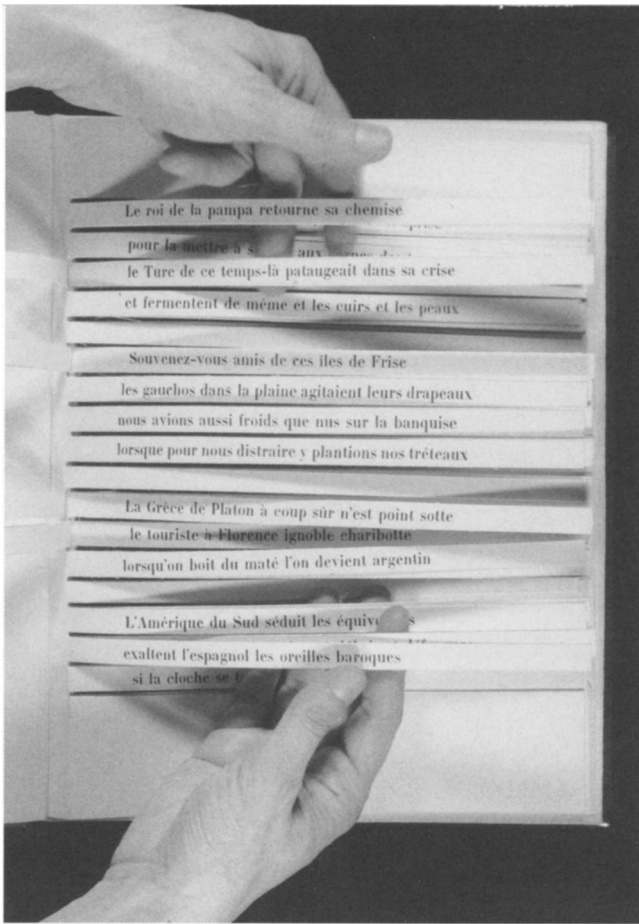 Le roi de la pampa retourne sa chemise
pour la mettre à s aux
le Turc de ce temps-là pataugeait dans sa crise
et fermentent de même et les cuirs et les peaux
Souvenez-vous amis de ces îles de Frise
les gauchos dans la plaine agitaient leurs drapeaux
nous avions aussi froids que nus sur la banquise
lorsque pour nous distraire y plantions nos tréteaux
La Grèce de Platon à coup sûr n'est point sotte
le touriste à Florence ignoble charibotte
lorsqu'on boit du maté l'on devient argentin
L'Amérique du Sud séduit les équiv s
exaltent l'espagnol les oreilles baroques
si la cloche se